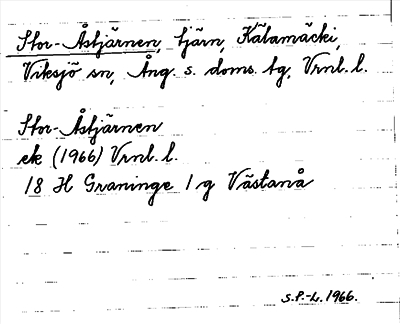 Stor-Åstjärnen, tjärn, Kälamäcki,
Viksjö sn, Ång. s. doms. tg, Vrnl. l.
Stor-Åstjärnen
ek (1966) Vrnl. l.
18 H Graninge 1 g Västanå
S.P.-L. 1966.